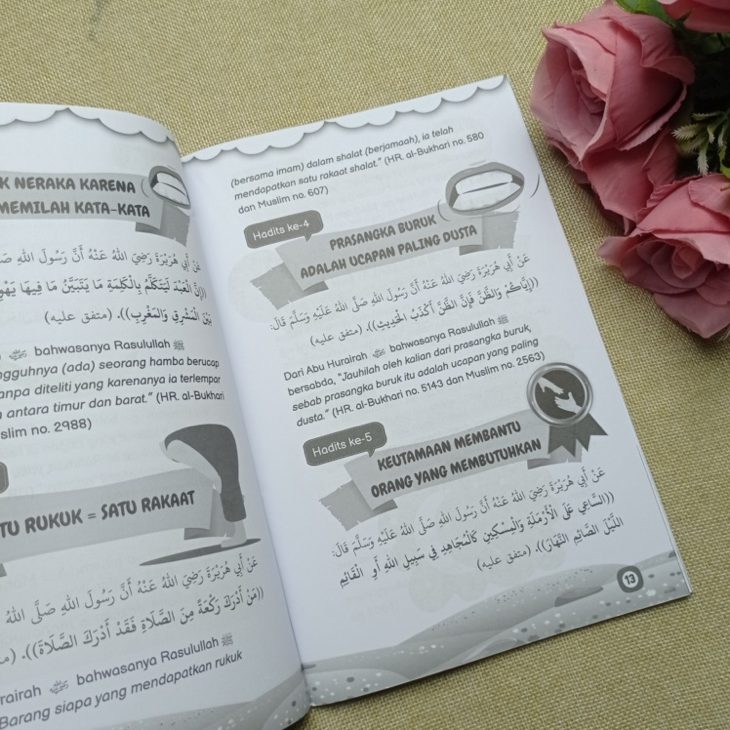 K NERAKA KARENA
MEMILAH KATA-KATA
عَنْ أَبِي هُرَيْرَةَ رَضِيَ اللهُ عَنْهُ أَنَّ رَسُولَ اللهِ
((إِنَّ الْعَبْدَ لَيَتَكَلَّمُ بِالْكَلِمَةِ مَا يَتَبَيَّنُ مَا فِيهَا يَهْوِ
بَيْنَ الْمَشْرِقِ وَالْمَغْرِبِ)). (متفق عليه)
bahwasanya Rasulullah ﷺ
ngguhnya (ada) seorang hamba berucap
anpa diteliti yang karenanya ia terlempar
antara timur dan barat." (HR. al-Bukhari
slim no. 2988)
TU RUKUK = SATU RAKAAT
عَنْ أَبِي هُرَيْرَةَ رَضِيَ اللهُ عَنْهُ أَنَّ رَسُولَ اللهِ صَلَّى اللهُ
((مَنْ أَدْرَكَ رَكْعَةً مِنَ الصَّلَاةِ فَقَدْ أَدْرَكَ الصَّلَاةَ)).
rairah bahwasanya Rasulullah ﷺ
Barang siapa yang mendapatkan rukuk
(bersama imam) dalam shalat (berjamaah), ia telah
mendapatkan satu rakaat shalat." (HR. al-Bukhari no. 580
dan Muslim no. 607)
Hadits ke-4
PRASANGKA BURUK
ADALAH UCAPAN PALING DUSTA
عَنْ أَبِي هُرَيْرَةَ رَضِيَ اللهُ عَنْهُ أَنَّ رَسُولَ اللهِ صَلَّى اللهُ عَلَيْهِ وَسَلَّمَ قَالَ:
((إِيَّاكُمْ وَالظَّنَّ فَإِنَّ الظَّنَّ أَكْذَبُ الْحَدِيثِ)). (متفق عليه)
Dari Abu Hurairah bahwasanya Rasulullah ﷺ
bersabda, "Jauhilah oleh kalian dari prasangka buruk,
sebab prasangka buruk itu adalah ucapan yang paling
dusta." (HR. al-Bukhari no. 5143 dan Muslim no. 2563)
Hadits ke-5
KEUTAMAAN MEMBANTU
ORANG YANG MEMBUTUHKAN
عَنْ أَبِي هُرَيْرَةَ رَضِيَ اللهُ عَنْهُ أَنَّ رَسُولَ اللهِ صَلَّى اللهُ عَلَيْهِ وَسَلَّمَ قَالَ:
((السَّاعِي عَلَى الْأَرْمَلَةِ وَالْمِسْكِينِ كَالْمُجَاهِدِ فِي سَبِيلِ اللهِ أَوِ الْقَائِمِ
اللَّيْلَ الصَّائِمِ النَّهَارَ)). (متفق عليه)
13